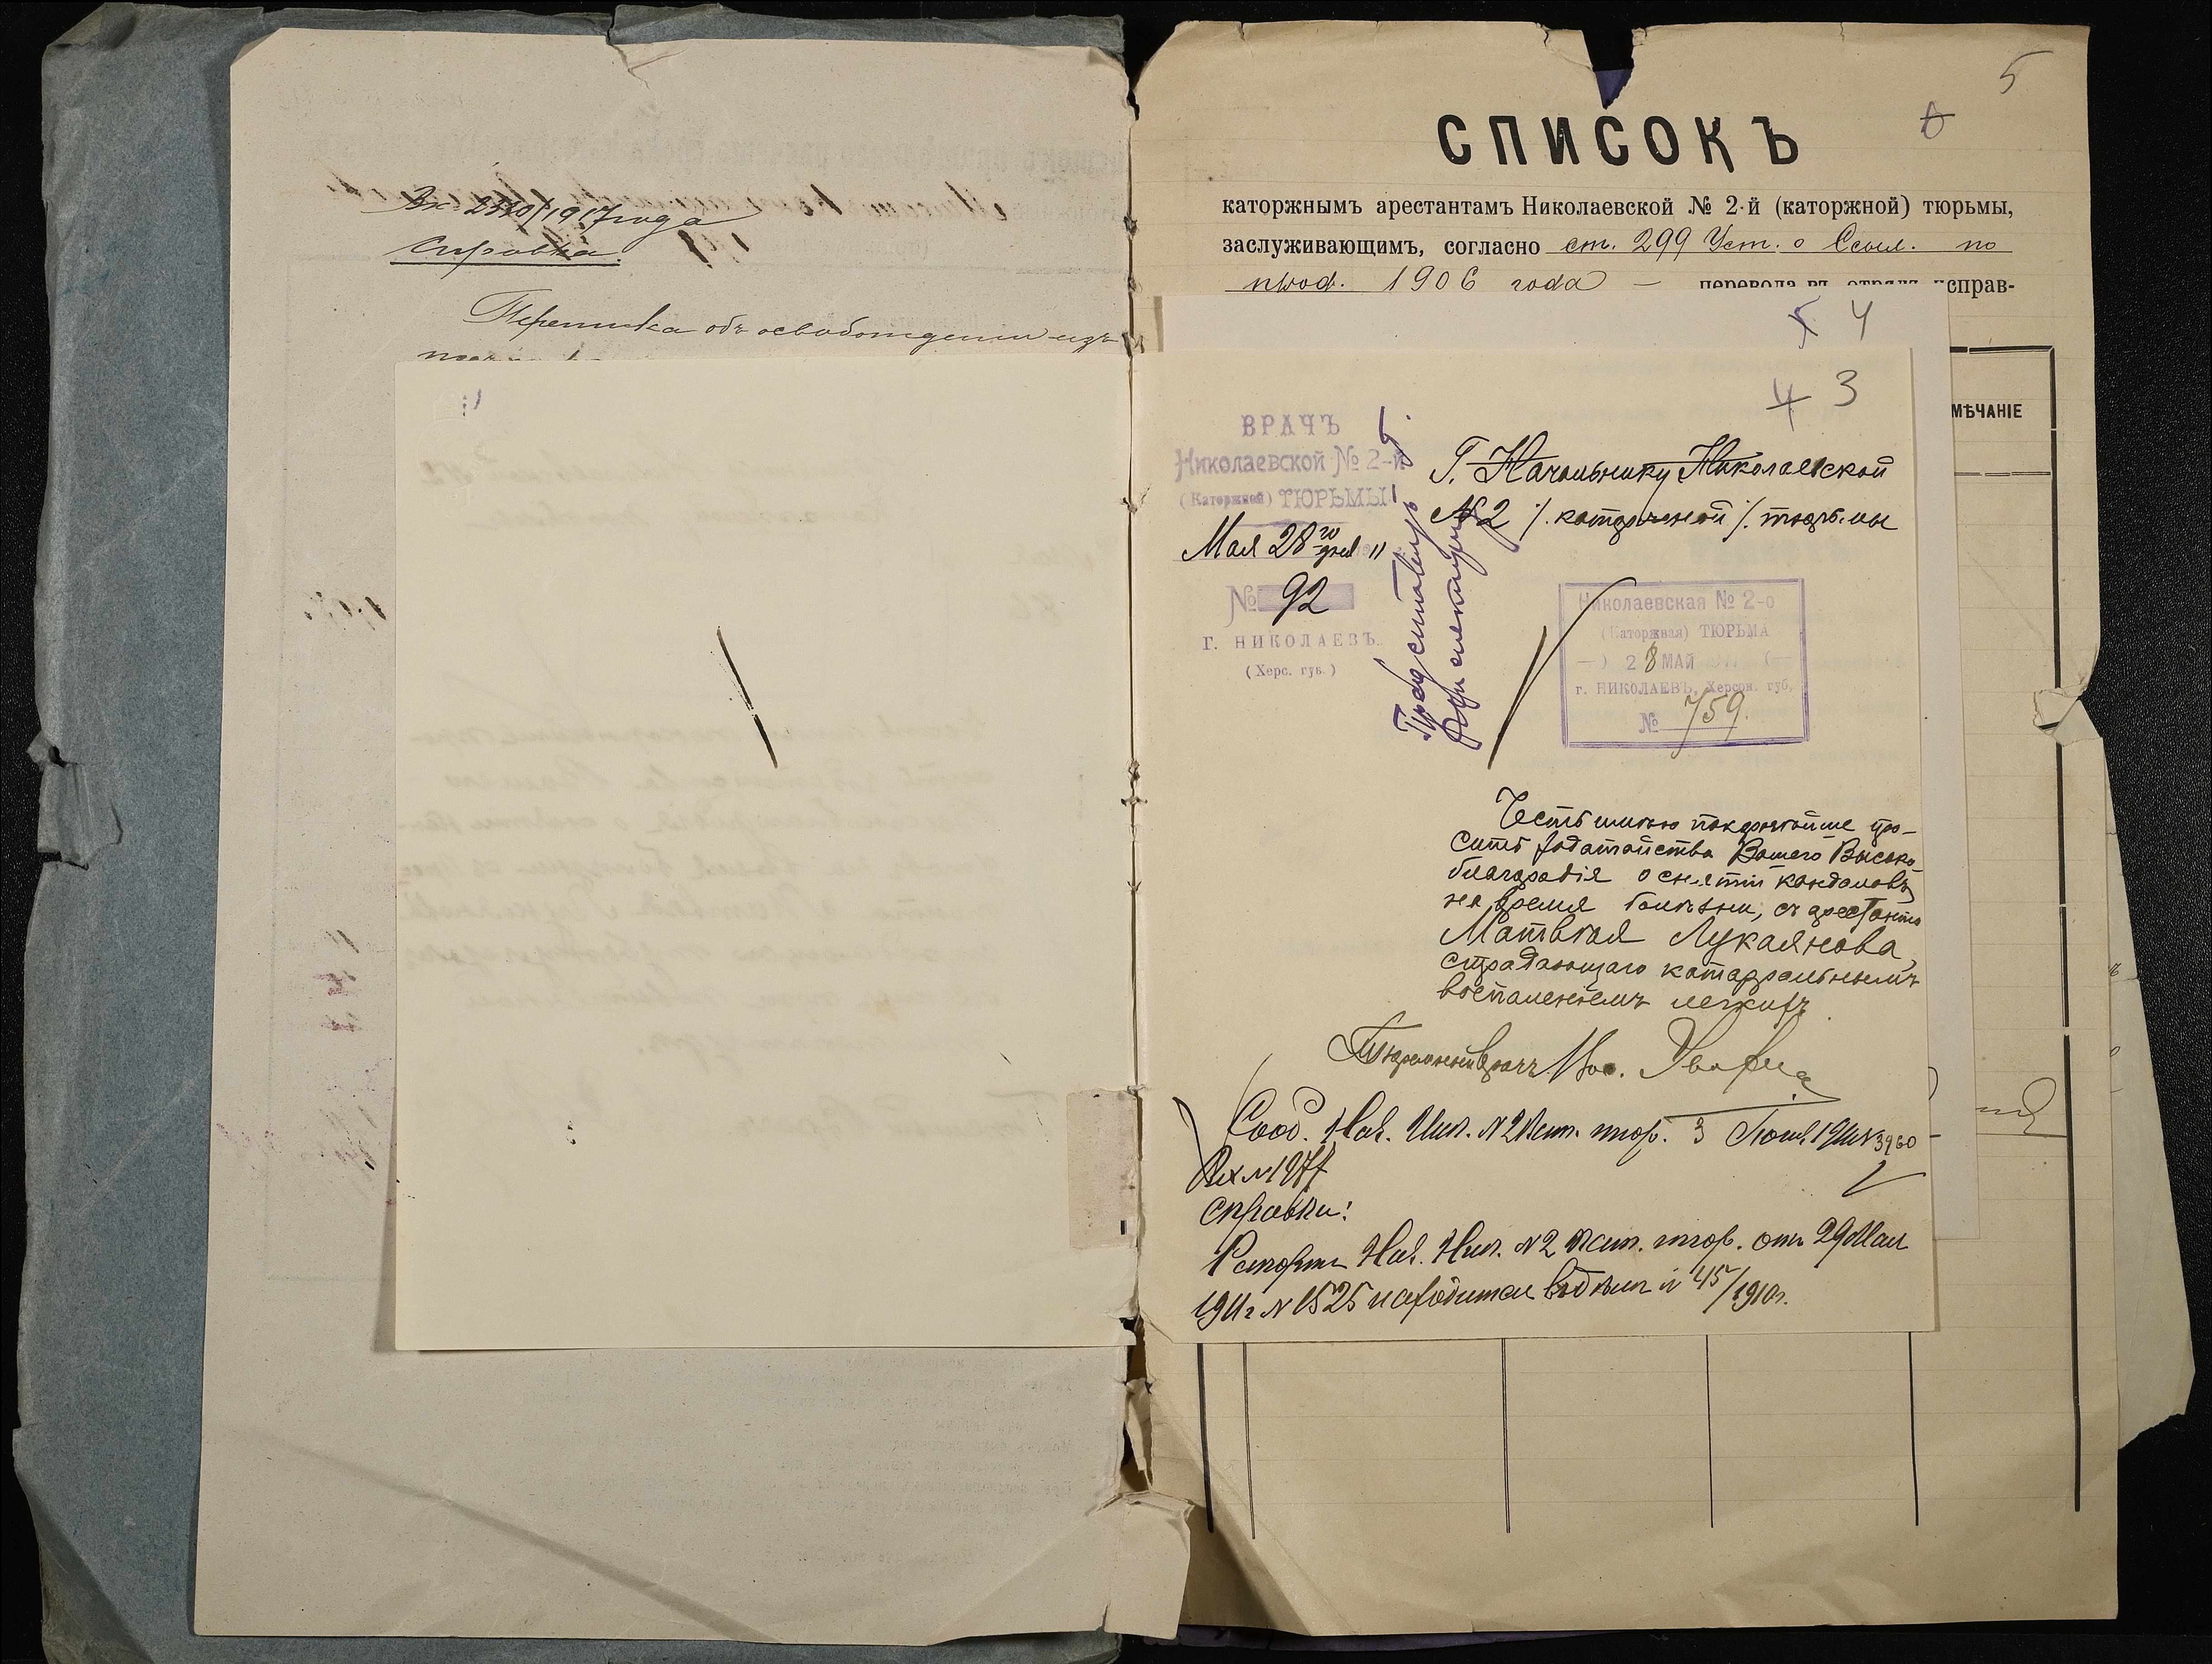 Вх 2310/1917 года
Справка.
Переписка объ освобожденіи изъ
5
6
СПИСОКЪ
каторжнымъ арестантамъ Николаевской № 2-й (каторжной) тюрьмы,
заслуживающимъ, согласно ст. 299 Уст. о Ссыл. по
прод. 1906 года — перевода въ отрядъ исправ-
5 4
МѢЧАНІЕ
4 3
ВРАЧЪ
Николаевской № 2-й
(Каторжной) ТЮРЬМЫ
Мая 28 го дня 11
№ 92
Г. НИКОЛАЕВЪ.
(Херс. губ.)
Представить
Г. Начальнику Николаевской
№2 /. каторжной /. тюрьмы
Николаевская № 2-о
(Каторжная) ТЮРЬМА
28 МАЙ
г. НИКОЛАЕВЪ, Херсон. губ.
№ 759.
Честь имѣю покорнѣйше про-
сить ходатайства Вашего Высоко-
благородія о снятіи кандаловъ,
на время болѣзни, съ арестанта
Матвѣя Лукаянова,
страдающаго катарральнымъ
воспаленіемъ легкихъ.
Тюремный врачъ
Сооб. Нач. Ник. №2 Кат. тюр. 3 Іюня 1911 № 3960
Вх № 1977
Справка:
Рапортъ Нач. Ник. №2 Кат. тюр. отъ 29 Мая
1911 г № 1525 находится въ дѣлѣ № 45/1910 г.